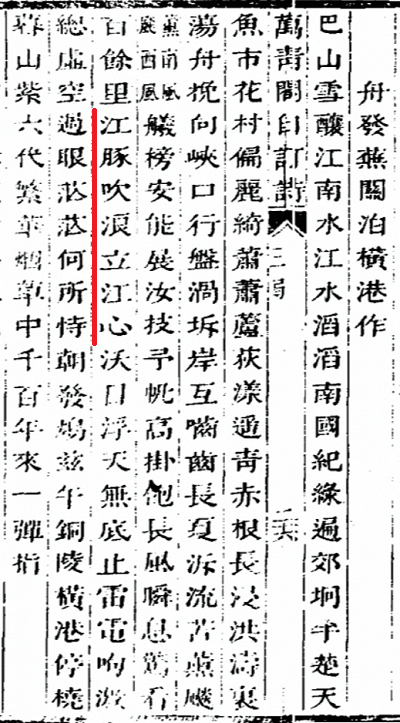 舟發燕關泊橫港作
巴山雪釀江南水江水滔滔南國紀綠遍郊坰半楚天
萬青閣自訂詩
魚市花村偏麗綺蕭蕭蘆荻漾遙青赤根長浸洪濤裏
蕩舟挽向峽口行盤渦坼岸互嚙齒長夏泝流苦薰飈
薰南風飈西風艤榜安能展汝技予帆高掛他長風瞬息驚看
百餘里江豚吹浪立江心沃日浮天無底止雷電呴激
總虛空過眼茫茫何所恃朝發鳩茲午銅陵橫港停橈
暮山紫六代繁華烟草中千百年來一彈指